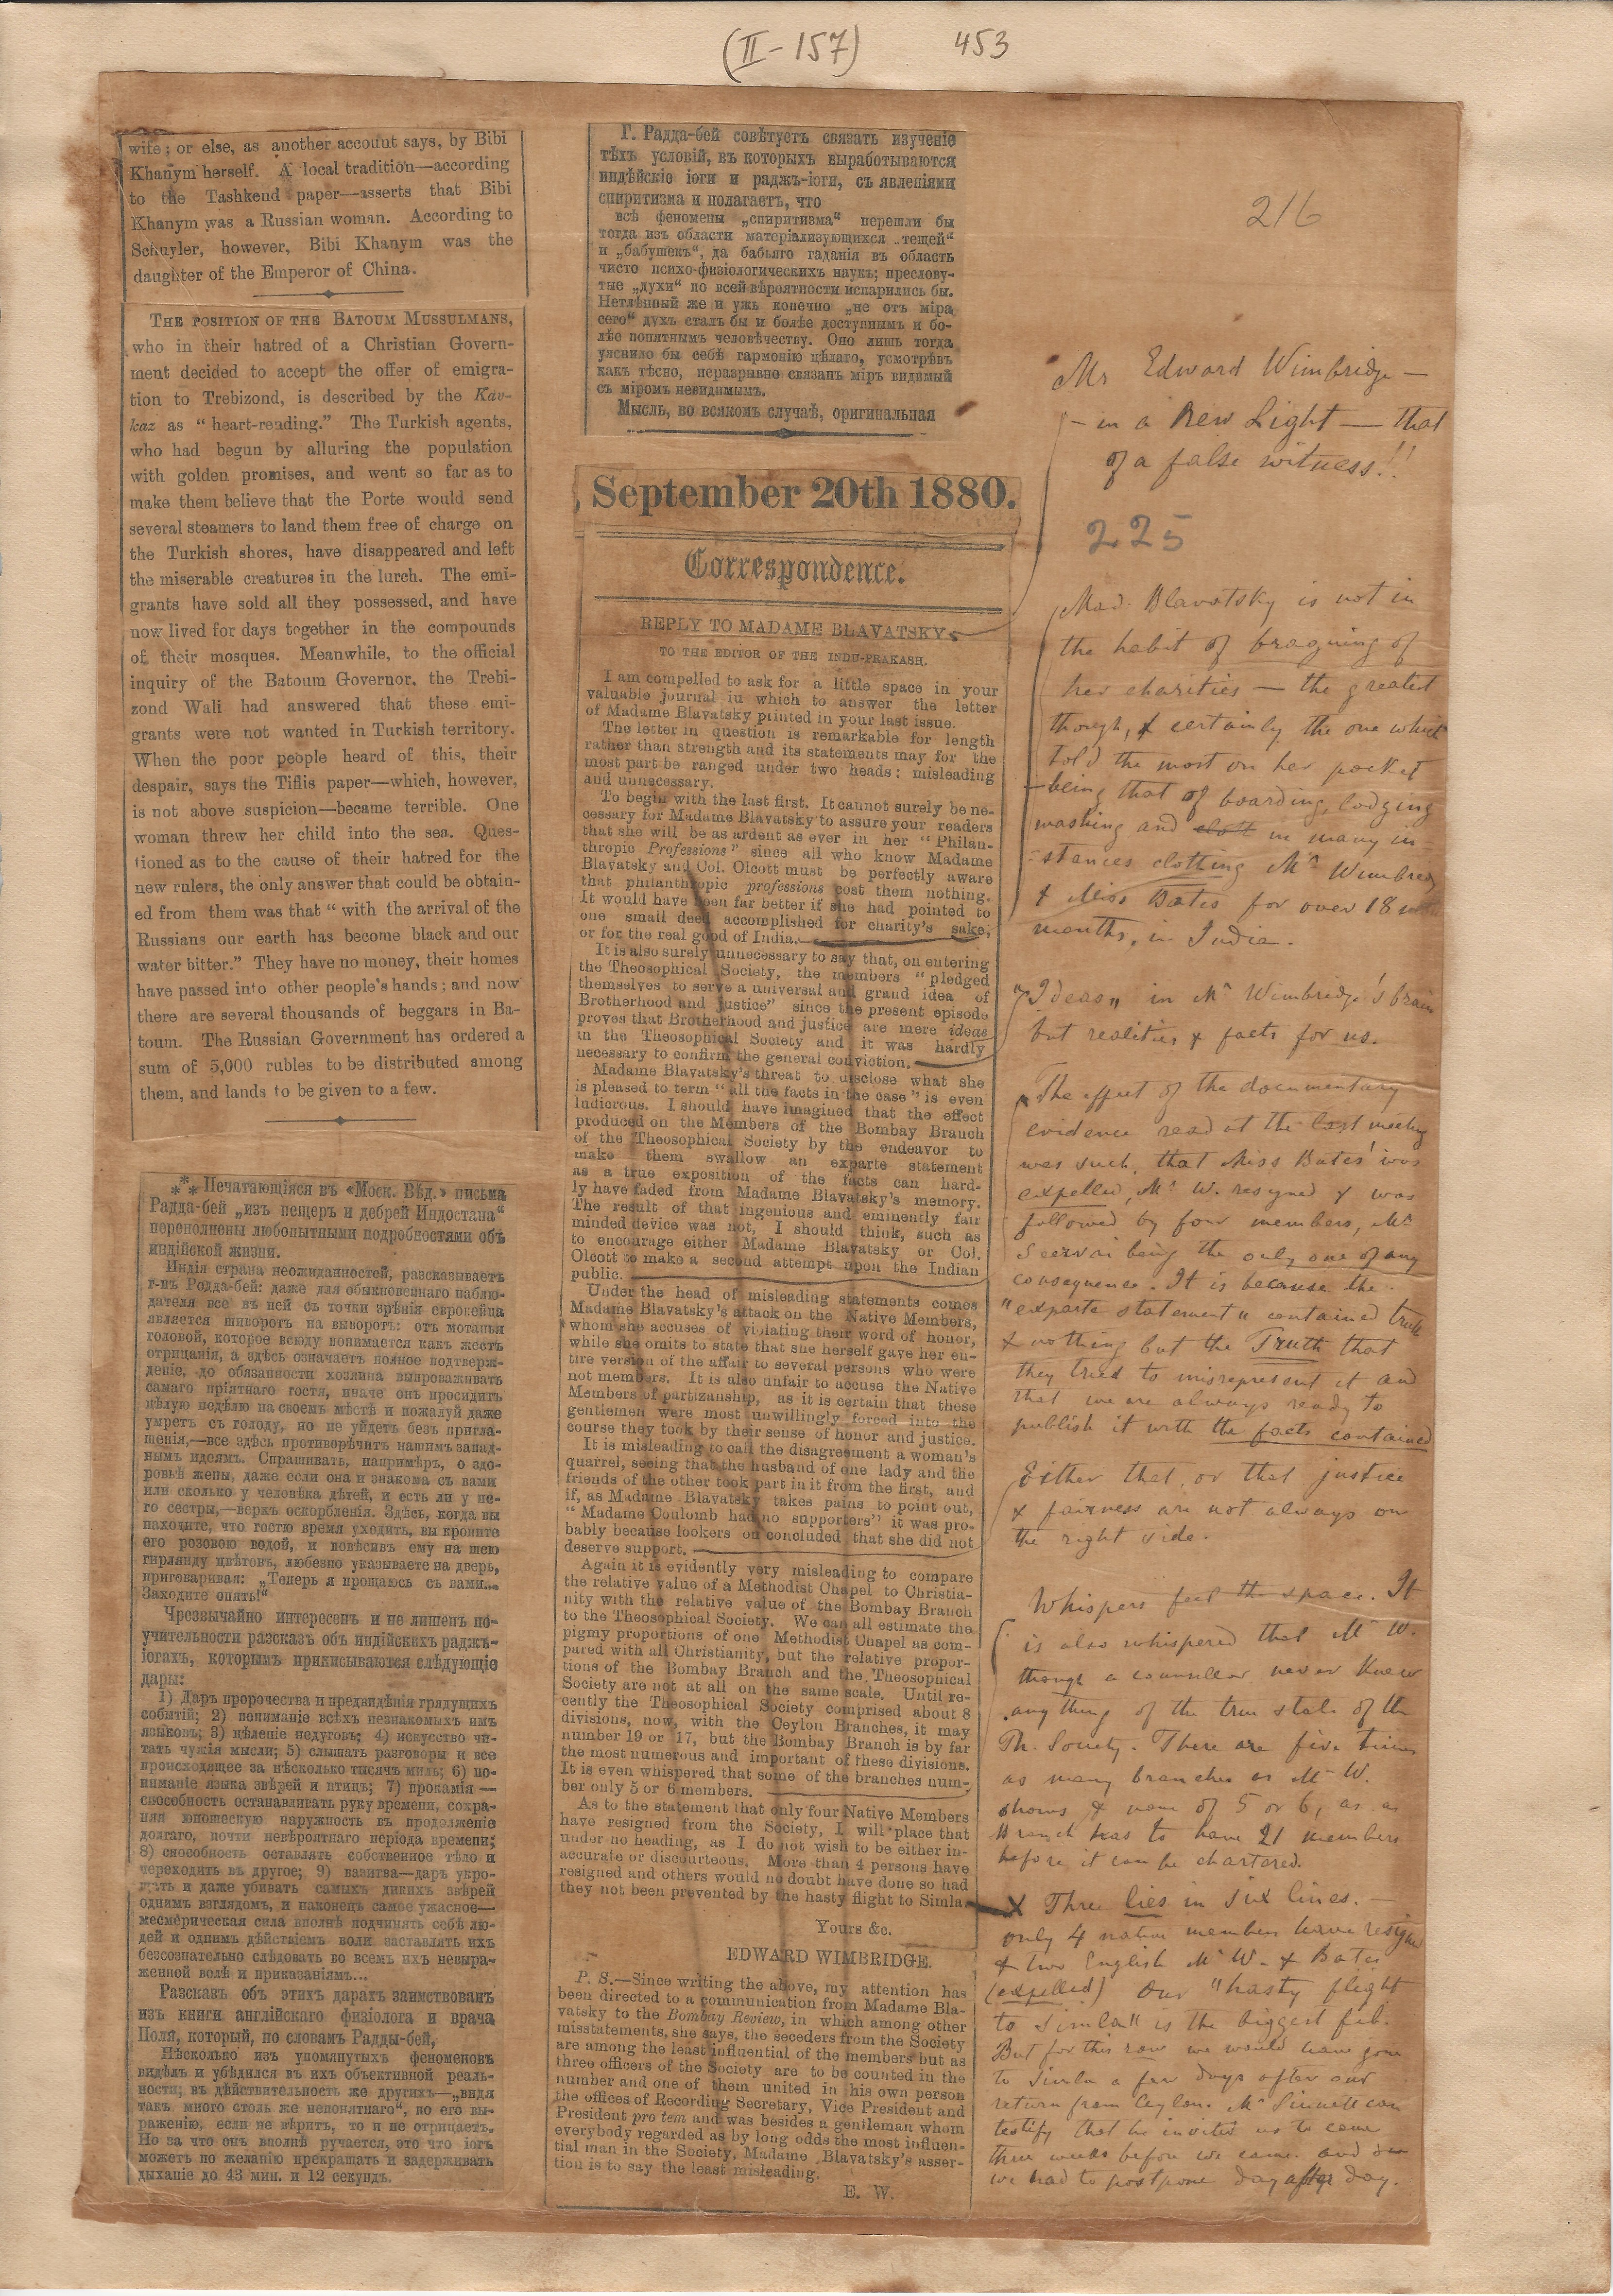 (II-157) 453
wife; or else, as another account says, by Bibi
Khanym herself. A local tradition—according
to the Tashkend paper—asserts that Bibi
Khanym was a Russian woman. According to
Schuyler, however, Bibi Khanym was the
daughter of the Emperor of China.
THE POSITION OF THE BATOUM MUSSULMANS,
who in their hatred of a Christian Govern-
ment decided to accept the offer of emigra-
tion to Trebizond, is described by the Kav-
kaz as "heart-rending." The Turkish agents,
who had begun by alluring the population
with golden promises, and went so far as to
make them believe that the Porte would send
several steamers to land them free of charge on
the Turkish shores, have disappeared and left
the miserable creatures in the lurch. The emi-
grants have sold all they possessed, and have
now lived for days together in the compounds
of their mosques. Meanwhile, to the official
inquiry of the Batoum Governor, the Trebi-
zond Wali had answered that these emi-
grants were not wanted in Turkish territory.
When the poor people heard of this, their
despair, says the Tiflis paper—which, however,
is not above suspicion—became terrible. One
woman threw her child into the sea. Ques-
tioned as to the cause of their hatred for the
new rulers, the only answer that could be obtain-
ed from them was that "with the arrival of the
Russians our earth has become black and our
water bitter." They have no money, their homes
have passed into other people's hands; and now
there are several thousands of beggars in Ba-
toum. The Russian Government has ordered a
sum of 5,000 rubles to be distributed among
them, and lands to be given to a few.
*** Печатающіяся въ «Моск. Вѣд.» письма
Радда-бей „изъ пещеръ и дебрей Индостана“
переполнены любопытными подробностями объ
индійской жизни.
Индія страна неожиданностей, разсказываетъ
г-нъ Родда-бей: даже для обыкновеннаго наблю-
дателя все въ ней съ точки зрѣнія европейца
является шиворотъ на выворотъ: отъ мотанья
головой, которое всюду понимается какъ жестъ
отрицанія, а здѣсь означаетъ полное подтверж-
деніе, до обязанности хозяина выпроваживать
самаго пріятнаго гостя, иначе онъ просидитъ
цѣлую недѣлю на своемъ мѣстѣ и пожалуй даже
умретъ съ голоду, но не уйдетъ безъ пригла-
шенія,—все здѣсь противорѣчитъ нашимъ запад-
нымъ идеямъ. Спрашивать, напримѣръ, о здо-
ровьѣ жены, даже если она и знакома съ вами
или сколько у человѣка дѣтей, и есть ли у не-
го сестры,—верхъ оскорбленія. Здѣсь, когда вы
находите, что гостю время уходить, вы кропите
его розовою водой, и повѣсивъ ему на шею
гирлянду цвѣтовъ, любезно указываете на дверь,
приговаривая: „Теперь я прощаюсь съ вами...
Заходите опять!“
Чрезвычайно интересенъ и не лишенъ по-
учительности разсказъ объ индійскихъ раджъ-
іогахъ, которымъ приписываются слѣдующіе
дары:
1) Даръ пророчества и предвидѣнія грядущихъ
событій; 2) пониманіе всѣхъ незнакомыхъ имъ
языковъ; 3) цѣленіе недуговъ; 4) искусство чи-
тать чужія мысли; 5) слышать разговоры и все
происходящее за нѣсколько тысячъ миль; 6) по-
ниманіе языка звѣрей и птицъ; 7) прокамія —
способность останавливать руку времени, сохра-
няя юношескую наружность въ продолженіе
долгаго, почти невѣроятнаго періода времени;
8) способность оставлять собственное тѣло и
переходить въ другое; 9) вазитва—даръ укро-
щать и даже убивать самыхъ дикихъ звѣрей
однимъ взглядомъ, и наконецъ самое ужасное—
месмерическая сила вполнѣ подчинять себѣ лю-
дей и однимъ дѣйствіемъ воли заставлять ихъ
безсознательно слѣдовать во всемъ ихъ невыра-
женной волѣ и приказаніямъ...
Разсказъ объ этихъ дарахъ заимствованъ
изъ книги англійскаго физіолога и врача
Поля, который, по словамъ Радды-бей,
Нѣсколько изъ упомянутыхъ феноменовъ
видѣлъ и убѣдился въ ихъ объективной реаль-
ности; въ дѣйствительность же другихъ—„видя
такъ много столь же непонятнаго“, по его вы-
раженію, если не вѣритъ, то и не отрицаетъ.
Но за что онъ вполнѣ ручается, это что іогъ
можетъ по желанію прекращать и задерживать
дыханіе до 43 мин. и 12 секундъ.
Г. Радда-бей совѣтуетъ связать изученіе
тѣхъ условій, въ которыхъ выработываются
индѣйскіе іоги и раджъ-іоги, съ явленіями
спиритизма и полагаетъ, что
всѣ феномены „спиритизма“ перешли бы
тогда изъ области матеріализующихся „тещей“
и „бабушекъ“, да бабьяго гаданія въ область
чисто психо-физіологическихъ наукъ; преслову-
тые „духи“ по всей вѣроятности испарились бы.
Нетлѣнный же и ужь конечно „не отъ міра
сего“ духъ сталъ бы и болѣе доступнымъ и бо-
лѣе понятнымъ человѣчеству. Оно лишь тогда
уяснило бы себѣ гармонію цѣлаго, усмотрѣвъ
какъ тѣсно, неразрывно связанъ міръ видимый
съ міромъ невидимымъ.
Мысль, во всякомъ случаѣ, оригинальная
September 20th 1880.
Correspondence.
REPLY TO MADAME BLAVATSKY.
TO THE EDITOR OF THE INDU-PRAKASH.
I am compelled to ask for a little space in your
valuable journal iu which to answer the letter
of Madame Blavatsky printed in your last issue.
The letter in question is remarkable for length
rather than strength and its statements may for the
most part be ranged under two heads: misleading
and unnecessary.
To begin with the last first. It cannot surely be ne-
cessary for Madame Blavatsky to assure your readers
that she will be as ardent as ever in her "Philan-
thropic Professions" since all who know Madame
Blavatsky and Col. Olcott must be perfectly aware
that philanthropic professions cost them nothing.
It would have been far better if she had pointed to
one small deed accomplished for charity's sake,
or for the real good of India.
It is also surely unnecessary to say that, on entering
the Theosophical Society, the members "pledged
themselves to serve a universal and grand idea of
Brotherhood and justice" since the present episode
proves that Brotherhood and justice are mere ideas
in the Theosophical Society and it was hardly
necessary to confirm the general conviction.
Madame Blavatsky's threat to disclose what she
is pleased to term "all the facts in the case" is even
ludicrous. I should have imagined that the effect
produced on the Members of the Bombay Branch
of the Theosophical Society by the endeavor to
make them swallow an exparte statement
as a true exposition of the facts can hard-
ly have faded from Madame Blavatsky's memory.
The result of that ingenious and eminently fair
minded device was not, I should think, such as
to encourage either Madame Blavatsky or Col.
Olcott to make a second attempt upon the Indian
public.
Under the head of misleading statements comes
Madame Blavatsky's attack on the Native Members,
whom she accuses of violating their word of honor,
while she omits to state that she herself gave her en-
tire version of the affair to several persons who were
not members. It is also unfair to accuse the Native
Members of partizanship, as it is certain that these
gentlemen were most unwillingly forced into the
course they took by their sense of honor and justice.
It is misleading to call the disagreement a woman's
quarrel, seeing that the husband of one lady and the
friends of the other took part in it from the first, and
if, as Madame Blavatsky takes pains to point out,
"Madame Coulomb had no supporters" it was pro-
bably because lookers on concluded that she did not
deserve support.
Again it is evidently very misleading to compare
the relative value of a Methodist Chapel to Christia-
nity with the relative value of the Bombay Branch
to the Theosophical Society. We can all estimate the
pigmy proportions of one Methodist Chapel as com-
pared with all Christianity, but the relative propor-
tions of the Bombay Branch and the Theosophical
Society are not at all on the same scale. Until re-
cently the Theosophical Society comprised about 8
divisions, now, with the Ceylon Branches, it may
number 19 or 17, but the Bombay Branch is by far
the most numerous and important of these divisions.
It is even whispered that some of the branches num-
ber only 5 or 6 members.
As to the statement that only four Native Members
have resigned from the Society, I will place that
under no heading, as I do not wish to be either in-
accurate or discourteous. More than 4 persons have
resigned and others would no doubt have done so had
they not been prevented by the hasty flight to Simla.
Yours &c.
EDWARD WIMBRIDGE.
P. S.—Since writing the above, my attention has
been directed to a communication from Madame Bla-
vatsky to the Bombay Review, in which among other
misstatements, she says, the seceders from the Society
are among the least influential of the members but as
three officers of the Society are to be counted in the
number and one of them united in his own person
the offices of Recording Secretary, Vice President and
President pro tem and was besides a gentleman whom
everybody regarded as by long odds the most influen-
tial man in the Society, Madame Blavatsky's asser-
tion is to say the least misleading.
E. W.
216
Mr Edward Wimbridge —
— in a New Light — that
of a false witness!!
225
Mad. Blavatsky is not in
the habit of bragging of
her charities — the greatest
though, & certainly the one which
told the most on her pocket
— being that of boarding, lodging
washing and cloth in many in-
stances clothing Mr Wimbridge
& Miss Bates for over 18
months, in India.
"Ideas" in Mr Wimbridge's brain
but realities & facts for us.
The effect of the documentary
evidence read at the last meeting
was such, that Miss Bates' was
expelled, Mr W. resigned & was
followed by four members, Mr
Seervai being the only one of any
consequence. It is because the
"exparte statement" contained truth
& nothing but the Truth that
they tried to misrepresent it and
that we are always ready to
publish it with the facts contained
Either that, or that justice
& fairness are not always on
the right side.
Whispers feel the space. It
is also whispered that Mr W.
though a counsellor never knew
anything of the true state of the
Th. Society. There are five times
as many branches as Mr W.
shows & none of 5 or 6, as a
Branch has to have 21 members
before it can be chartered.
X Three lies in six lines. —
only 4 native members have resigned
& two English Mr W. & Bates
(expelled) Our "hasty flight
to Simla" is the biggest fib.
But for this row we would have gone
to Simla a few days after our
return from Ceylon. Mr Sinnett can
testify that he invited us to come
three weeks before we came and
we had to postpone day after day.